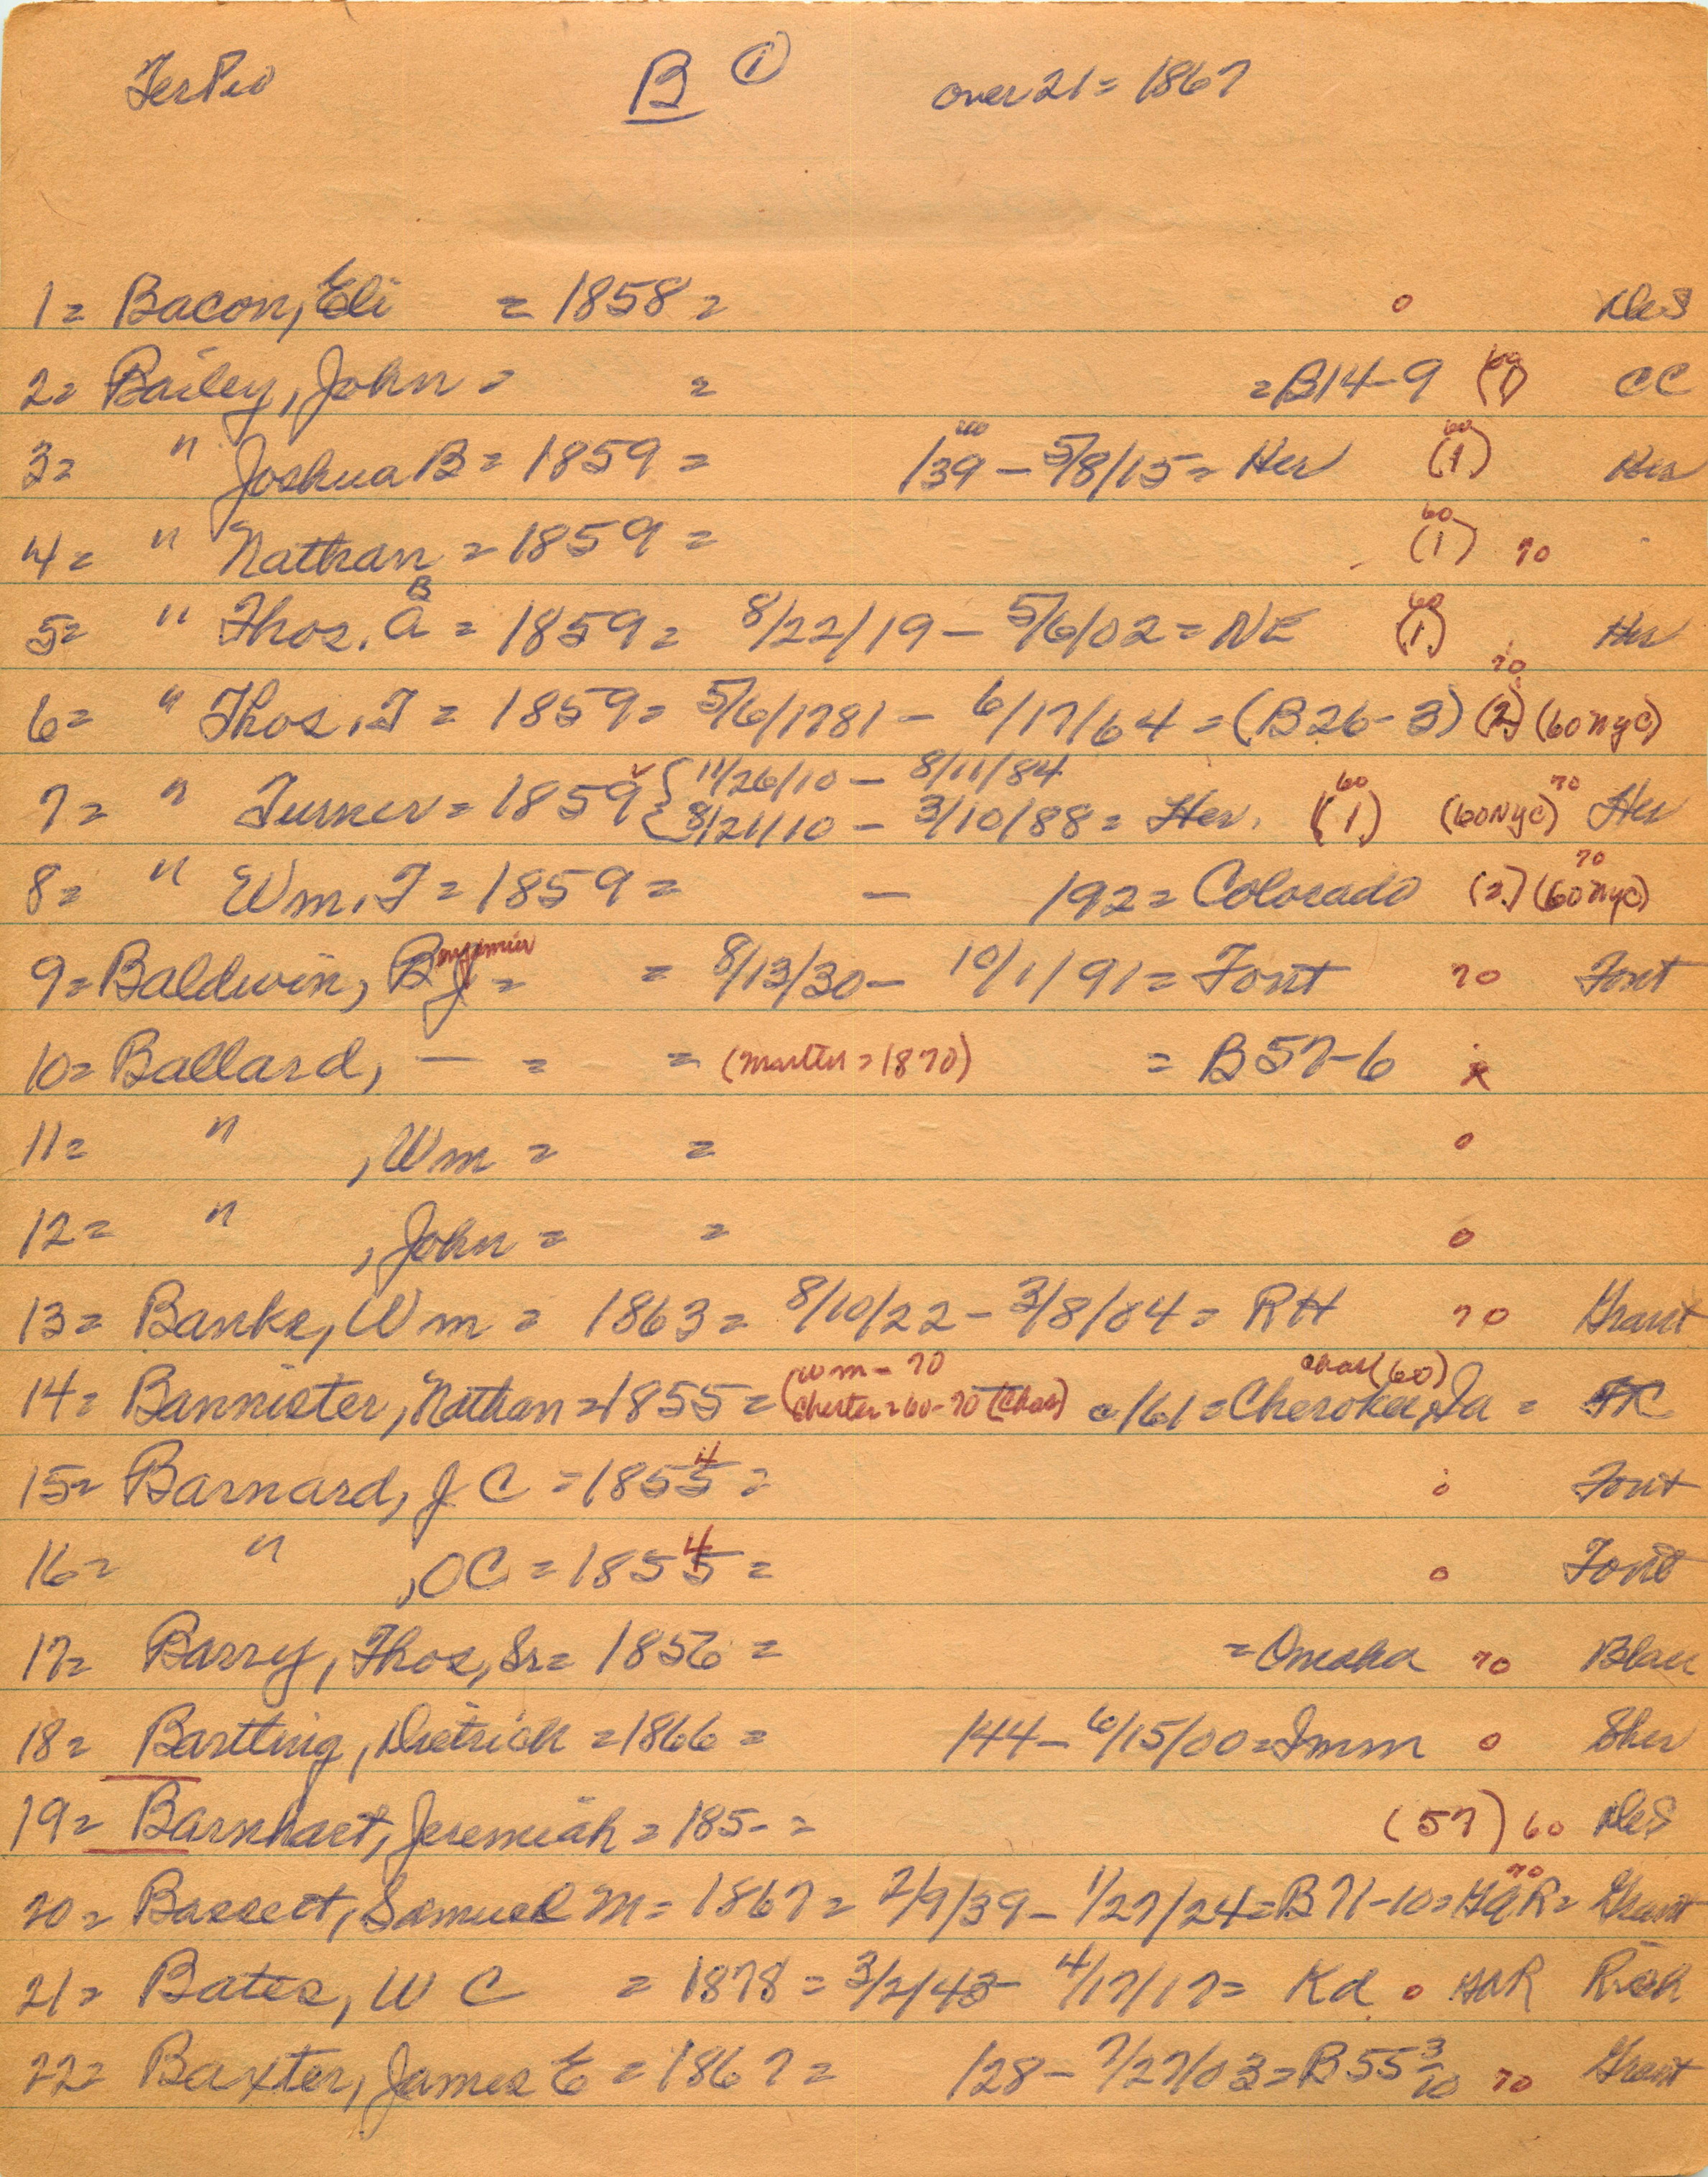 TerPio B (1) over 21 = 1867
1 = Bacon, Eli = 1858 = o DeS
2 = Bailey, John = = = B14-9 60 (1) CC
3 = " Joshua B = 1859 = /39 - 5/8/15 = Her 60 (1) Her
4 = " Nathan = 1859 = 60 (1) 70
5 = " Thos. A B = 1859 = 8/22/19 - 5/6/02 = NE 60 (1) Her
6 = " Thos. T = 1859 = 5/6/1781 - 6/17/64 = (B26-3) (2) 70 (60 NYC)
7 = " Turner = 1859 { 11/26/10 - 8/11/84
8/21/10 - 3/10/88 = Her. 60 (1) (60 NYC) 70 Her
8 = " Wm. T = 1859 = - 192 = Colorado (2) (60 NYC) 70
9 = Baldwin, B enjamin J = = 8/13/30 - 10/1/91 = Font 70 Font
10 = Ballard, — = = (Martin = 1870) = B57-6 x
11 = " , Wm = = o
12 = " , John = = o
13 = Banks, Wm = 1863 = 8/10/22 - 3/8/04 = RH 70 Grant
14 = Bannister, Nathan = 1855 = (Wm - 70
Chester = 60-70 (Chas) /61 = Cherokee, Ia = Chas (60) FC
15 = Barnard, J C = 1855 4 = o Font
16 = " , O C = 1855 4 = o Font
17 = Barry, Thos, Sr = 1856 = = Omaha 70 Blair
18 = Bartling, Dietrich = 1866 = /44 - 6/15/00 = Imm o Sher
19 = Barnhart, Jeremiah = 185- = (57) 60 DeS
20 = Bassett, Samuel M = 1867 = 2/9/39 - 1/27/24 = B71-10 = GAR = 70 Grant
21 = Bates, W C = 1878 = 3/2/43 - 4/17/17 = Kd o GAR Rich
22 = Baxter, James E = 1867 = /28 - 7/27/03 = B55 3/10 70 Grant